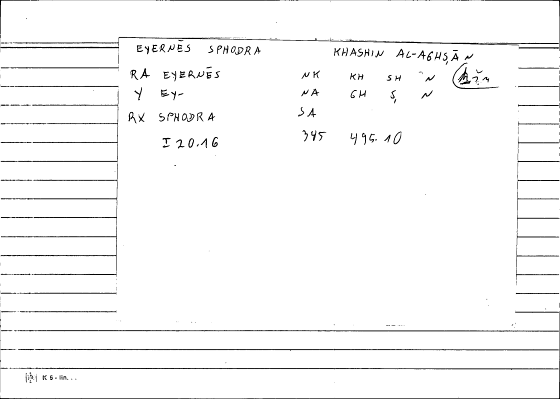 EYERNĒS SPHODRA KHASHIN AL-AGHṢĀN
RA EYERNĒS NK KH SH N
Y EY- NA GH Ṣ N
RX SPHODRA SA
I 20.16 345 495.10
K 6 - lin. . .